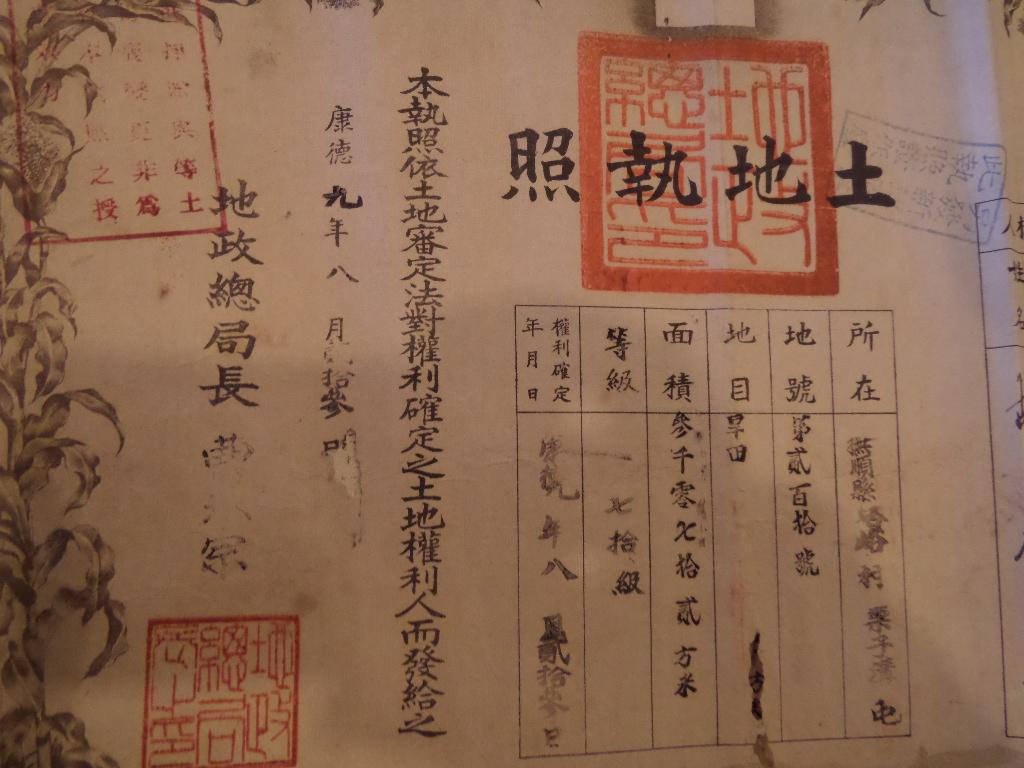 土地執照
地政總
所在
撫順縣塔峪村栗子溝屯
地號
第貳百拾號
地目
旱田
面積
參千零七拾貳方米
等級
七拾級
權利確定
年月日
康德九年八月貳拾參日
本執照依土地審定法對權利確定之土地權利人而發給之
康德九年八月貳拾參
地政總局長
等土
非為
之授
地政
總局